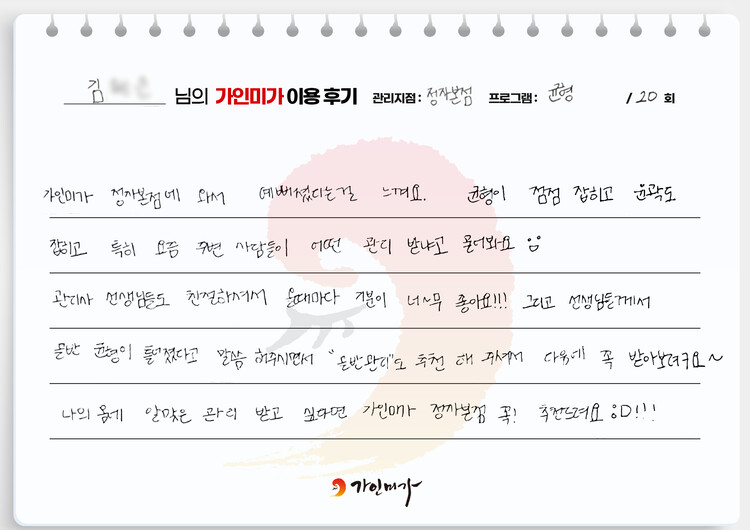 김 님의 가인미가 이용 후기 관리지점 : 정자본점 프로그램 : 균형 / 20 회
가인미가 정자본점에 와서 예뻐졌다는걸 느껴요. 균형이 점점 잡히고 윤곽도
잡히고 특히 요즘 주변 사람들이 어떤 관리 받냐고 물어봐요
관리사 선생님들도 친절하셔서 올때마다 기분이 너~무 좋아요!!! 그리고 선생님들께서
골반 균형이 틀어졌다고 말씀 해주시면서 "골반관리"도 추천 해 주셔서 다음에 꼭 받아보려구요~
나의 몸에 알맞은 관리 받고 싶다면 가인미가 정자본점 꼭! 추천드려요 :D!!!
가인미가